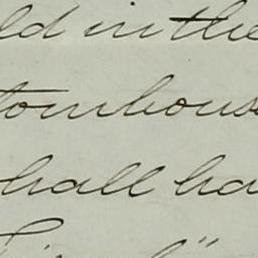 ld in the
tomhouse
hall ha